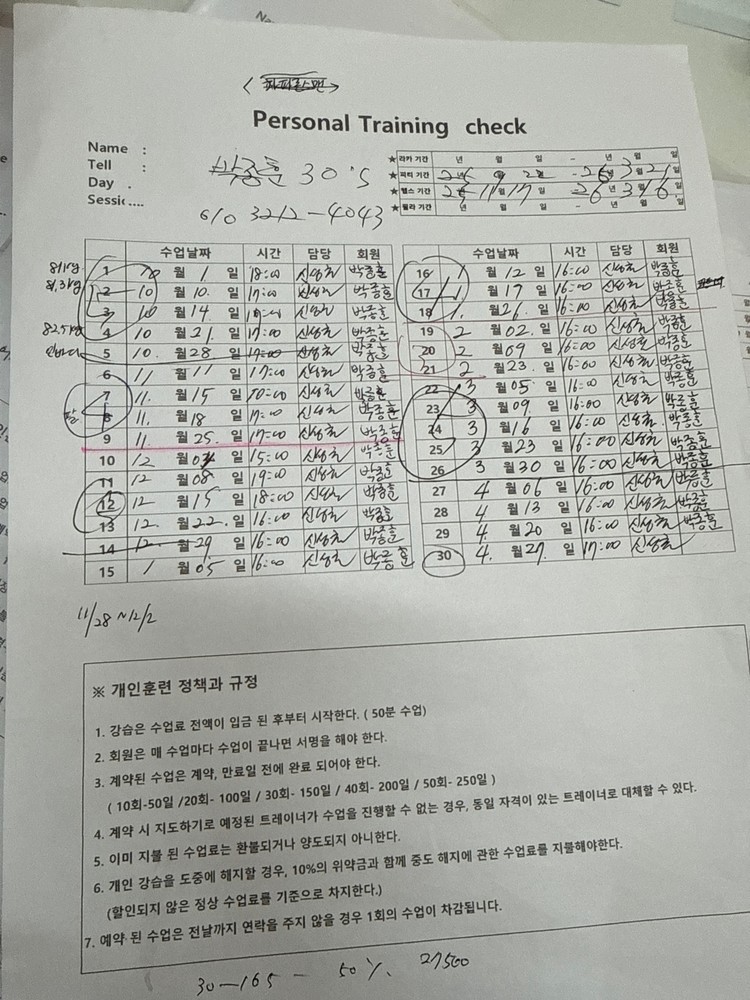 Personal Training check
Name :
Tell :
Day .
Sessic....
박종훈 30's
010 3212-4043
★ 라카 기간 년 월 일 - 년 월 일
★ 피티 기간 년 월 일 - 26년 3월 21일
★ 헬스 기간 년 11월 17일 - 26년 3월 16일
★ 월라 기간 년 월 일 - 년 월 일
수업날짜 시간 담당 회원
1 10월 1일 18:00 신성호 박종훈
2 10월 10일 17:00 신성호 박종훈
3 10월 14일 신성호 박종훈
82.5kg
4 10월 21일 17:00 신성호 박종훈
인바디
5 10월 28일 17:00 신성호 박종훈
6 11월 11일 17:00 신성호 박종훈
7 11월 15일 10:00 신성호 박종훈
8 11월 18일 17:00 신성호 박종훈
9 11월 25일 17:00 신성호 박종훈
10 12월 일 15:00 신성호 박종훈
11 12월 08일 19:00 신성호 박종훈
12 12월 15일 18:00 신성호 박종훈
13 12월 22일 16:00 신성호 박종훈
14 12월 29일 16:00 신성호 박종훈
15 1월 05일 16:00 신성호 박종훈
수업날짜 시간 담당 회원
16 1월 12일 16:00 신성호 박종훈
17 1월 19일 16:00 신성호 박종훈
18 1월 26일 16:00 신성호 박종훈
19 2월 02일 16:00 신성호 박종훈
20 2월 09일 16:00 신성호 박종훈
21 2월 23일 16:00 신성호 박종훈
22 3월 05일 16:00 신성호 박종훈
23 3월 09일 16:00 신성호 박종훈
24 3월 16일 16:00 신성호 박종훈
25 3월 23일 16:00 신성호 박종훈
26 3월 30일 16:00 신성호 박종훈
27 4월 06일 16:00 신성호 박종훈
28 4월 13일 16:00 신성호 박종훈
29 4월 20일 16:00 신성호 박종훈
30 4월 27일 17:00 신성호
11/28 ~ 12/2
※ 개인훈련 정책과 규정
1. 강습은 수업료 전액이 입금 된 후부터 시작한다. ( 50분 수업)
2. 회원은 매 수업마다 수업이 끝나면 서명을 해야 한다.
3. 계약된 수업은 계약, 만료일 전에 완료 되어야 한다.
( 10회-50일 /20회- 100일 / 30회- 150일 / 40회- 200일 / 50회- 250일 )
4. 계약 시 지도하기로 예정된 트레이너가 수업을 진행할 수 없는 경우, 동일 자격이 있는 트레이너로 대체할 수 있다.
5. 이미 지불 된 수업료는 환불되거나 양도되지 아니한다.
6. 개인 강습을 도중에 해지할 경우, 10%의 위약금과 함께 중도 해지에 관한 수업료를 지불해야한다.
(할인되지 않은 정상 수업료를 기준으로 차지한다.)
7. 예약 된 수업은 전날까지 연락을 주지 않을 경우 1회의 수업이 차감됩니다.
30-165 - 50%. 27500